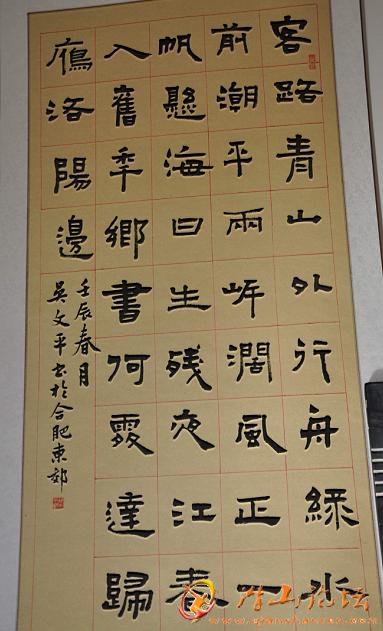 客路青山外行舟綠水
前潮平兩岸濶風正一
帆懸海日生残夜江春
入舊秊鄉書何處達歸
鴈洛陽邊
壬辰春月
吳文平书於合肥東郊
潜山论坛